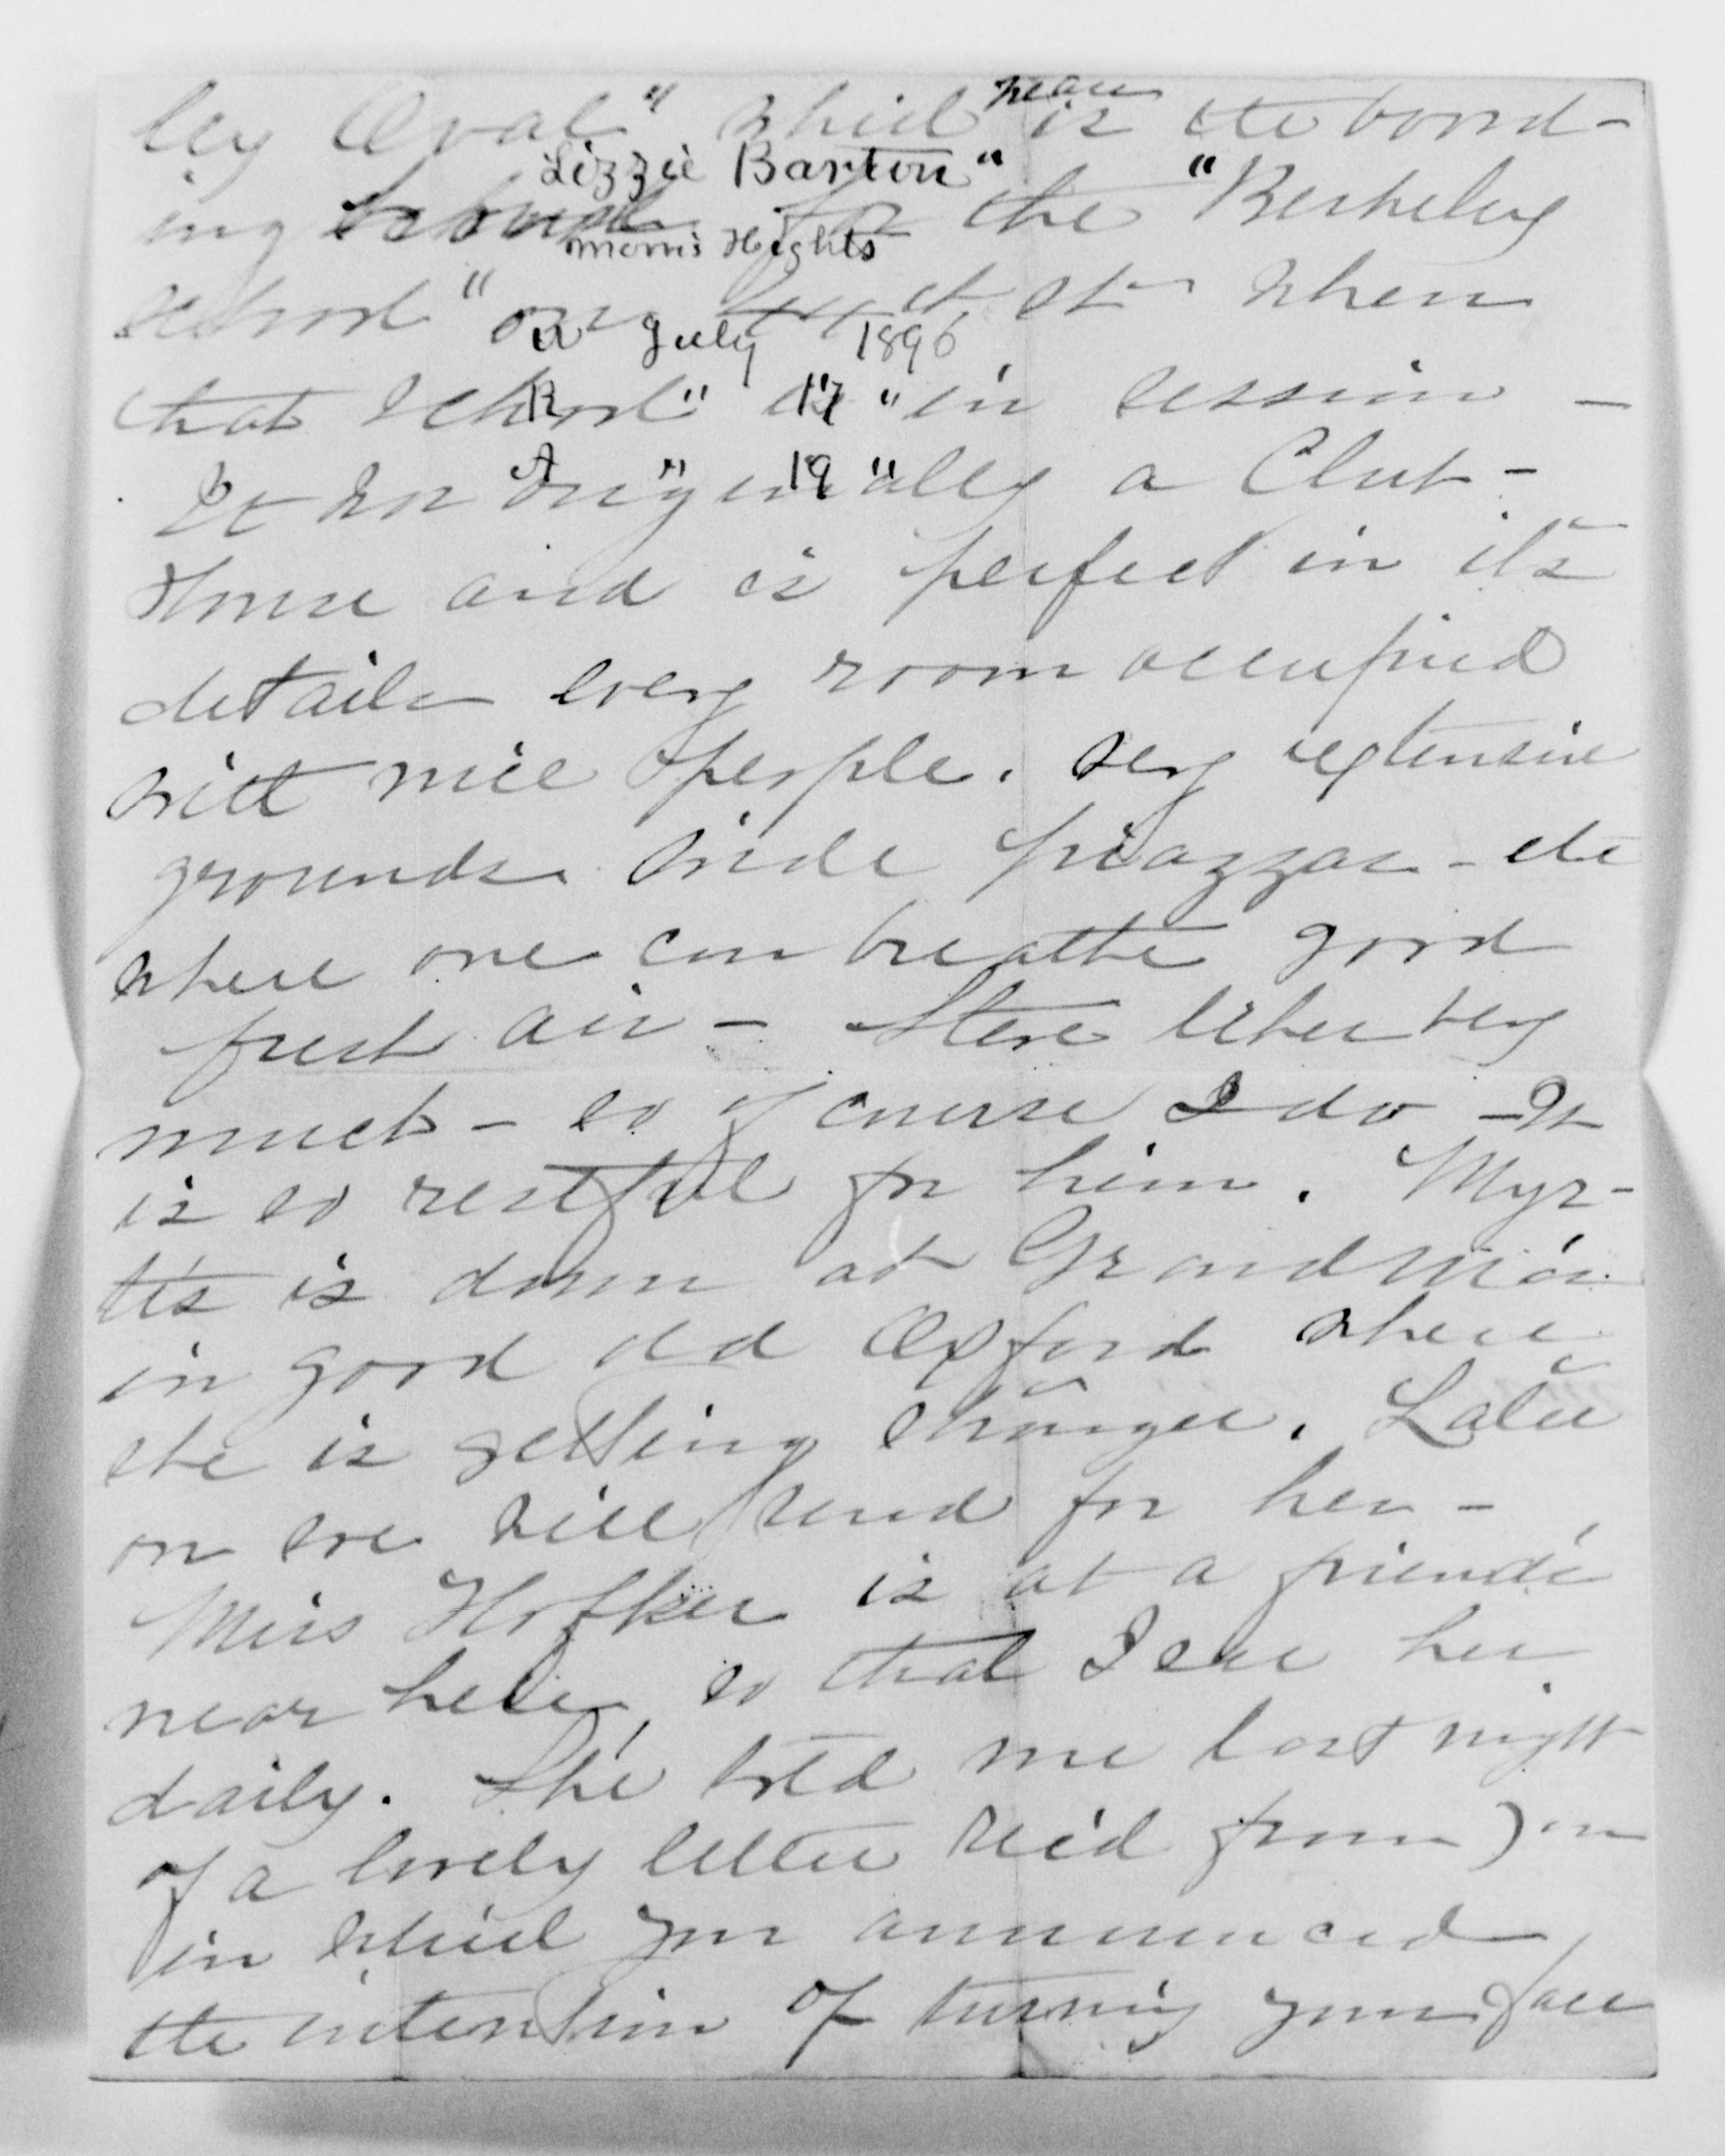 ley Oval" which near is the board-
Lizzie Barton"
ing school for the "Berkeley
Morris Heights
school" on st when
a July 1896
that school is in session -
R " 17 "
A " 19 "
It was originally a Club-
House and is perfect in it's
details every room occupied
with nice people. very extensive
grounds. wide piazzas - etc
where one can breathe good
fresh air - Steve likes very
much - so of course I do - It
is so restful for him. Myr-
tis is down at Grandma's
in good old Oxford where
she is getting stronger. Later
on we will send for her -
Miss Hofker is at a friend's
near here, so that I see her
daily. She told me last night
of a lovely letter rec'd from you
in which you announced
the intention of turning your face